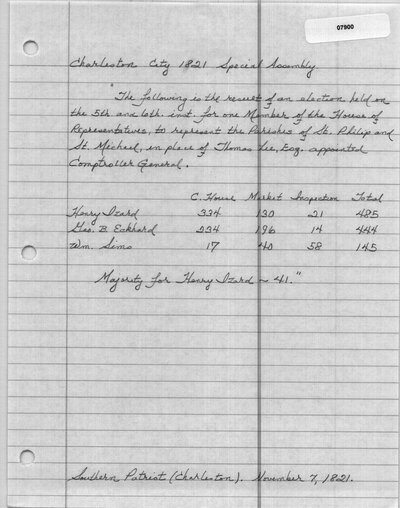 07900
Charleston City 1821 Special Assembly
"The following is the result of an election held on
the 5th and 6th. inst. for one Member of the House of
Representatives, to represent the Parishes of St. Philip and
St. Michael, in place of Thomas Lee, Esq. appointed
Comptroller General.
C. House Market Inspection Total
Henry Izard 334 130 21 485
Geo. B. Eckhard 234 196 14 444
Wm. Sims 17 40 58 145
Majority for Henry Izard ~ 41."
Southern Patriot (Charleston). November 7, 1821.